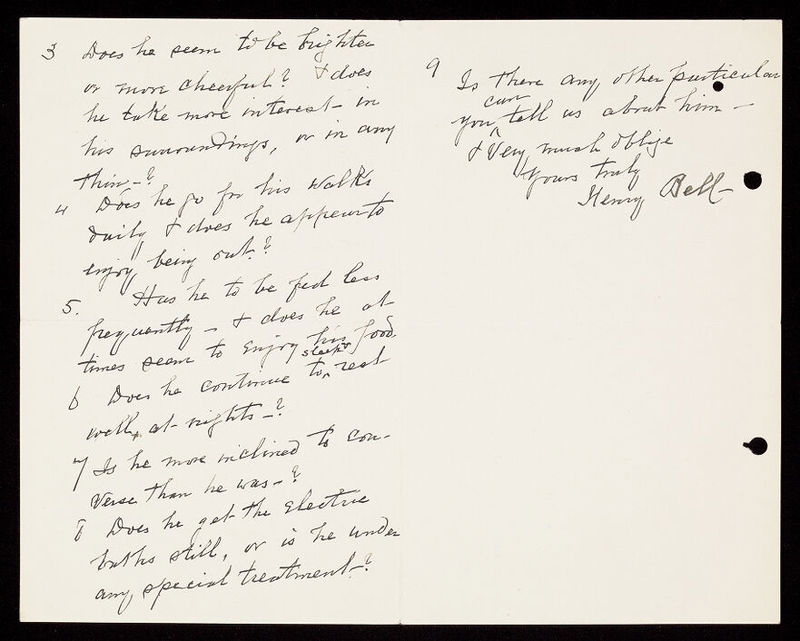 3 Does he seem to be brighter
or more cheerful? & does
he take more interest - in
his surroundings, or in any
thing -?
4 Does he go for his walks
daily & does he appear to
enjoy being out?
5. Has he to be fed less
frequently - & does he at
times seem to enjoy his food.
sleep &
6 Does he continue to ^ rest
well, at nights -?
7 Is he more inclined to con-
verse than he was -?
8 Does he get the electric
baths still, or is he under
any special treatment -?
9 Is there any other particular
can
you ^ tell us about him -
& Very much oblige
Yours truly
Henry Bell